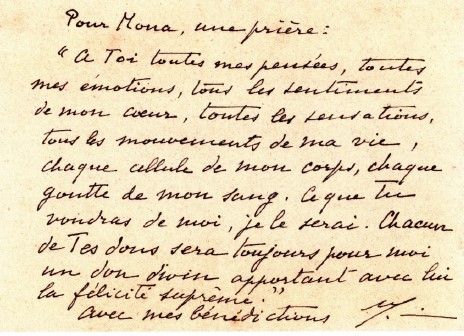 Pour Mona, une prière:
"A Toi toutes mes pensées, toutes
mes émotions, tous les sentiments
de mon cœur, toutes les sensations,
tous les mouvements de ma vie,
chaque cellule de mon corps, chaque
goutte de mon sang. Ce que tu
voudras de moi, je le serai. Chacun
de Tes dons sera toujours pour moi
un don divin apportant avec lui
la félicité suprême."
avec mes bénédictions